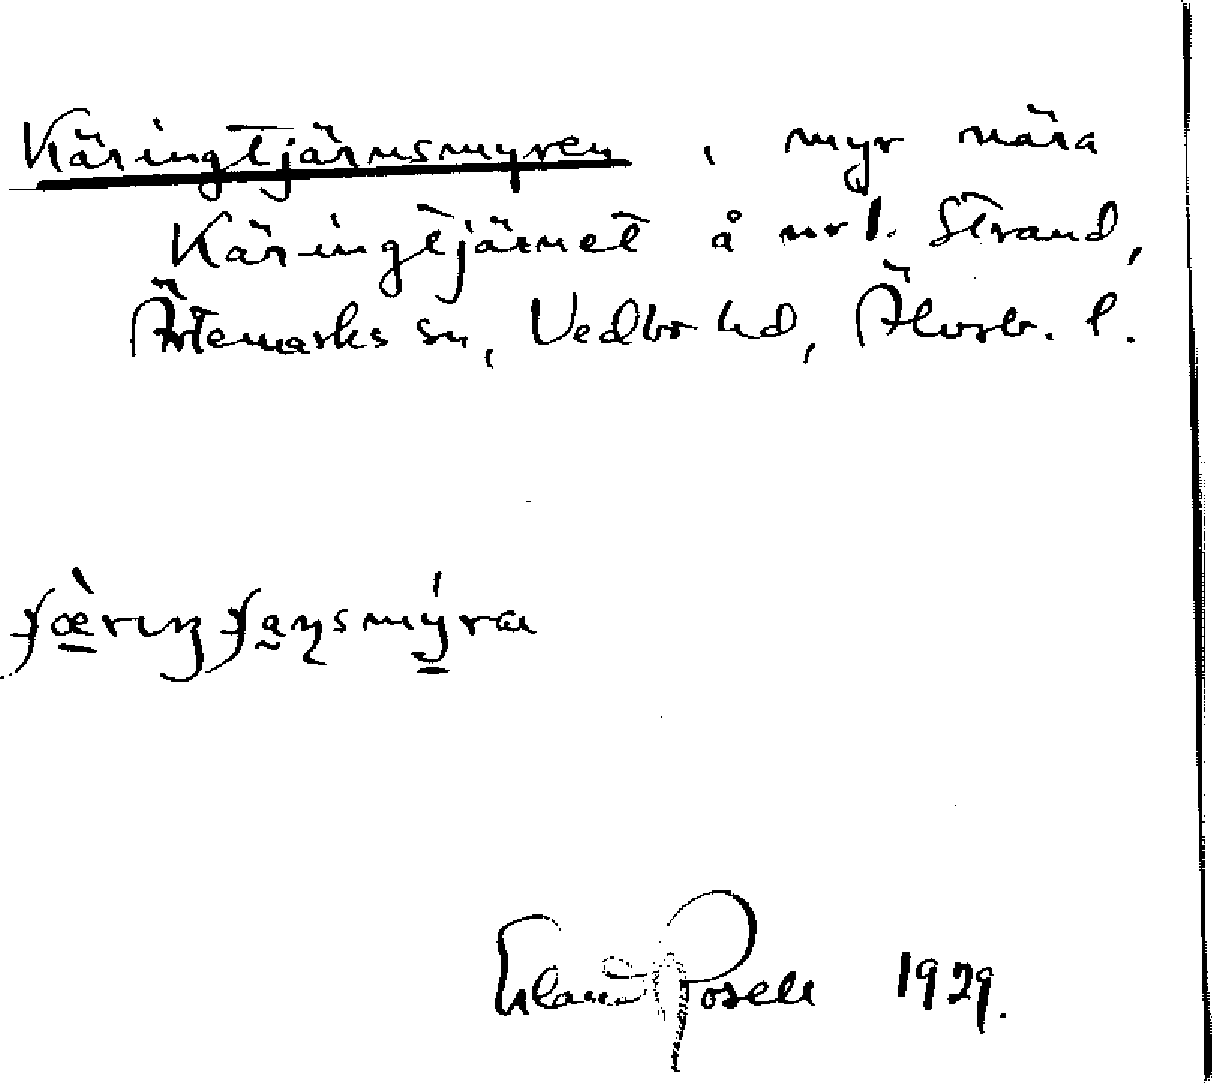 Käringtjärnsmyren, myr nära
Käringtjärnet å nrl. Strand,
Ärtemarks sn, Vedbo hd, Älvsb. l.
ʃæ̀rıŋʃaɳsmýra
Erland Rosell 1929.